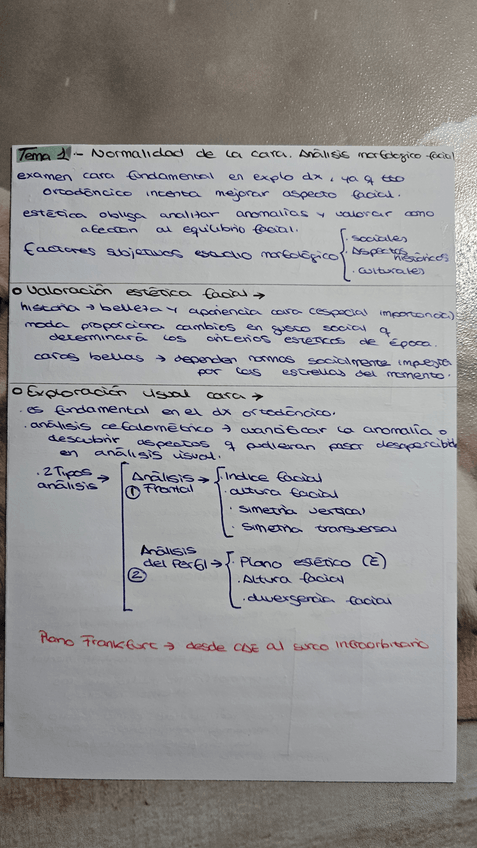 Tema 1.- Normalidad de la cara. Análisis morfológico facial
examen cara fundamental en explo dx, ya q tto
ortodóncico intenta mejorar aspecto facial.
estética obliga analizar anomalías y valorar como
afectan al equilibrio facial.
Factores subjetivos estudio morfológico
· sociales
· Aspectos históricos
· culturales
o Valoración estética facial →
historia → belleza y apariencia cara (especial importancia)
moda proporciona cambios en gusto social q
determinará los criterios estéticos de época.
caras bellas → dependen normas socialmente impuesta
por las estrellas del momento.
o Exploración visual cara →
· es fundamental en el dx ortodóncico.
· análisis cefalométrico → cuantificar la anomalía o
descubrir aspectos q pudieran pasar desapercibidos
en análisis visual.
· 2 Tipos análisis →
① Análisis Frontal →
· Indice facial
· altura facial
· simetría vertical
· simetria transversal
② Análisis del Perfil →
· Plano estético (E)
· Altura facial
· divergencia facial
Plano Frankfurt → desde CAE al surco infraorbitario